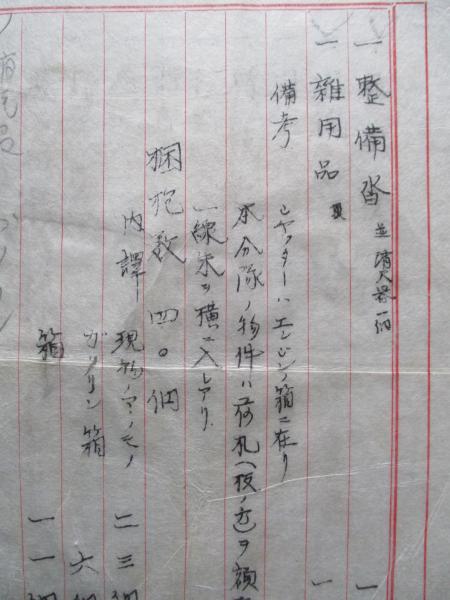 一 整備沓 並消火器一個 一
一 雑用品 一
備考
シヤッターハエンジン箱ニ在リ
本分隊ノ物件ハ荷札(板ノ
一線朱ヲ横ニ入レアリ
梱包数 四〇個
内譯 現物ノマヽノモノ 二三個
ガソリン箱 六個
箱 一一個